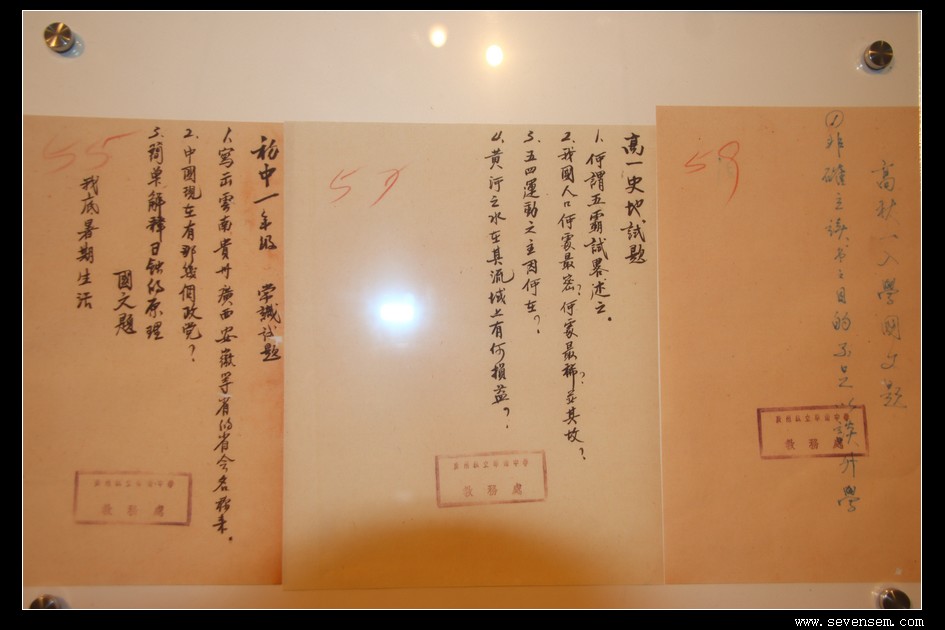 59
高秋一入學國文題
非確立讀書之目的不足以談升學
教務處
57
高一史地試題
1. 何謂五霸試畧述之。
2. 我國人口何處最密？何處最稀？並其故？
3. 五四運動之主因何在？
4. 黃河之水在其流域上有何損益？
教務處
55
初中一年級 常識試題
1. 寫出雲南貴州廣西安徽等省的省會名稱來。
2. 中國現在有那幾個政党？
3. 簡單解釋日蝕的原理
國文題
我底暑期生活
教務處
www.sevensem.com